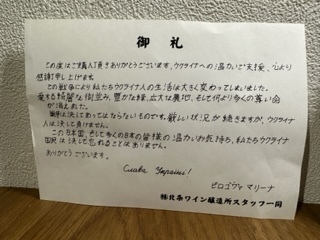 御礼
この度はご購入頂きありがとうございます。ウクライナへの温かいご支援、心より
感謝申し上げます。
この戦争により私たちウクライナ人の生活は大きく変わってしまいました。
愛する綺麗な街並み、豊かな緑、広大な農地、そして何より多くの尊い命
が消えました。
戦争は決してあってはならないものです。厳しい状況が続きますが、ウクライナ
人は決して負けません。
この日本国、そして多くの日本の皆様の温かいお気持ち、私たちウクライナ
国民は決して忘れることはありません。
ありがとうございます。
Слава Україні!
ピロゴヴァ マリーナ
㈱北条ワイン醸造所スタッフ一同